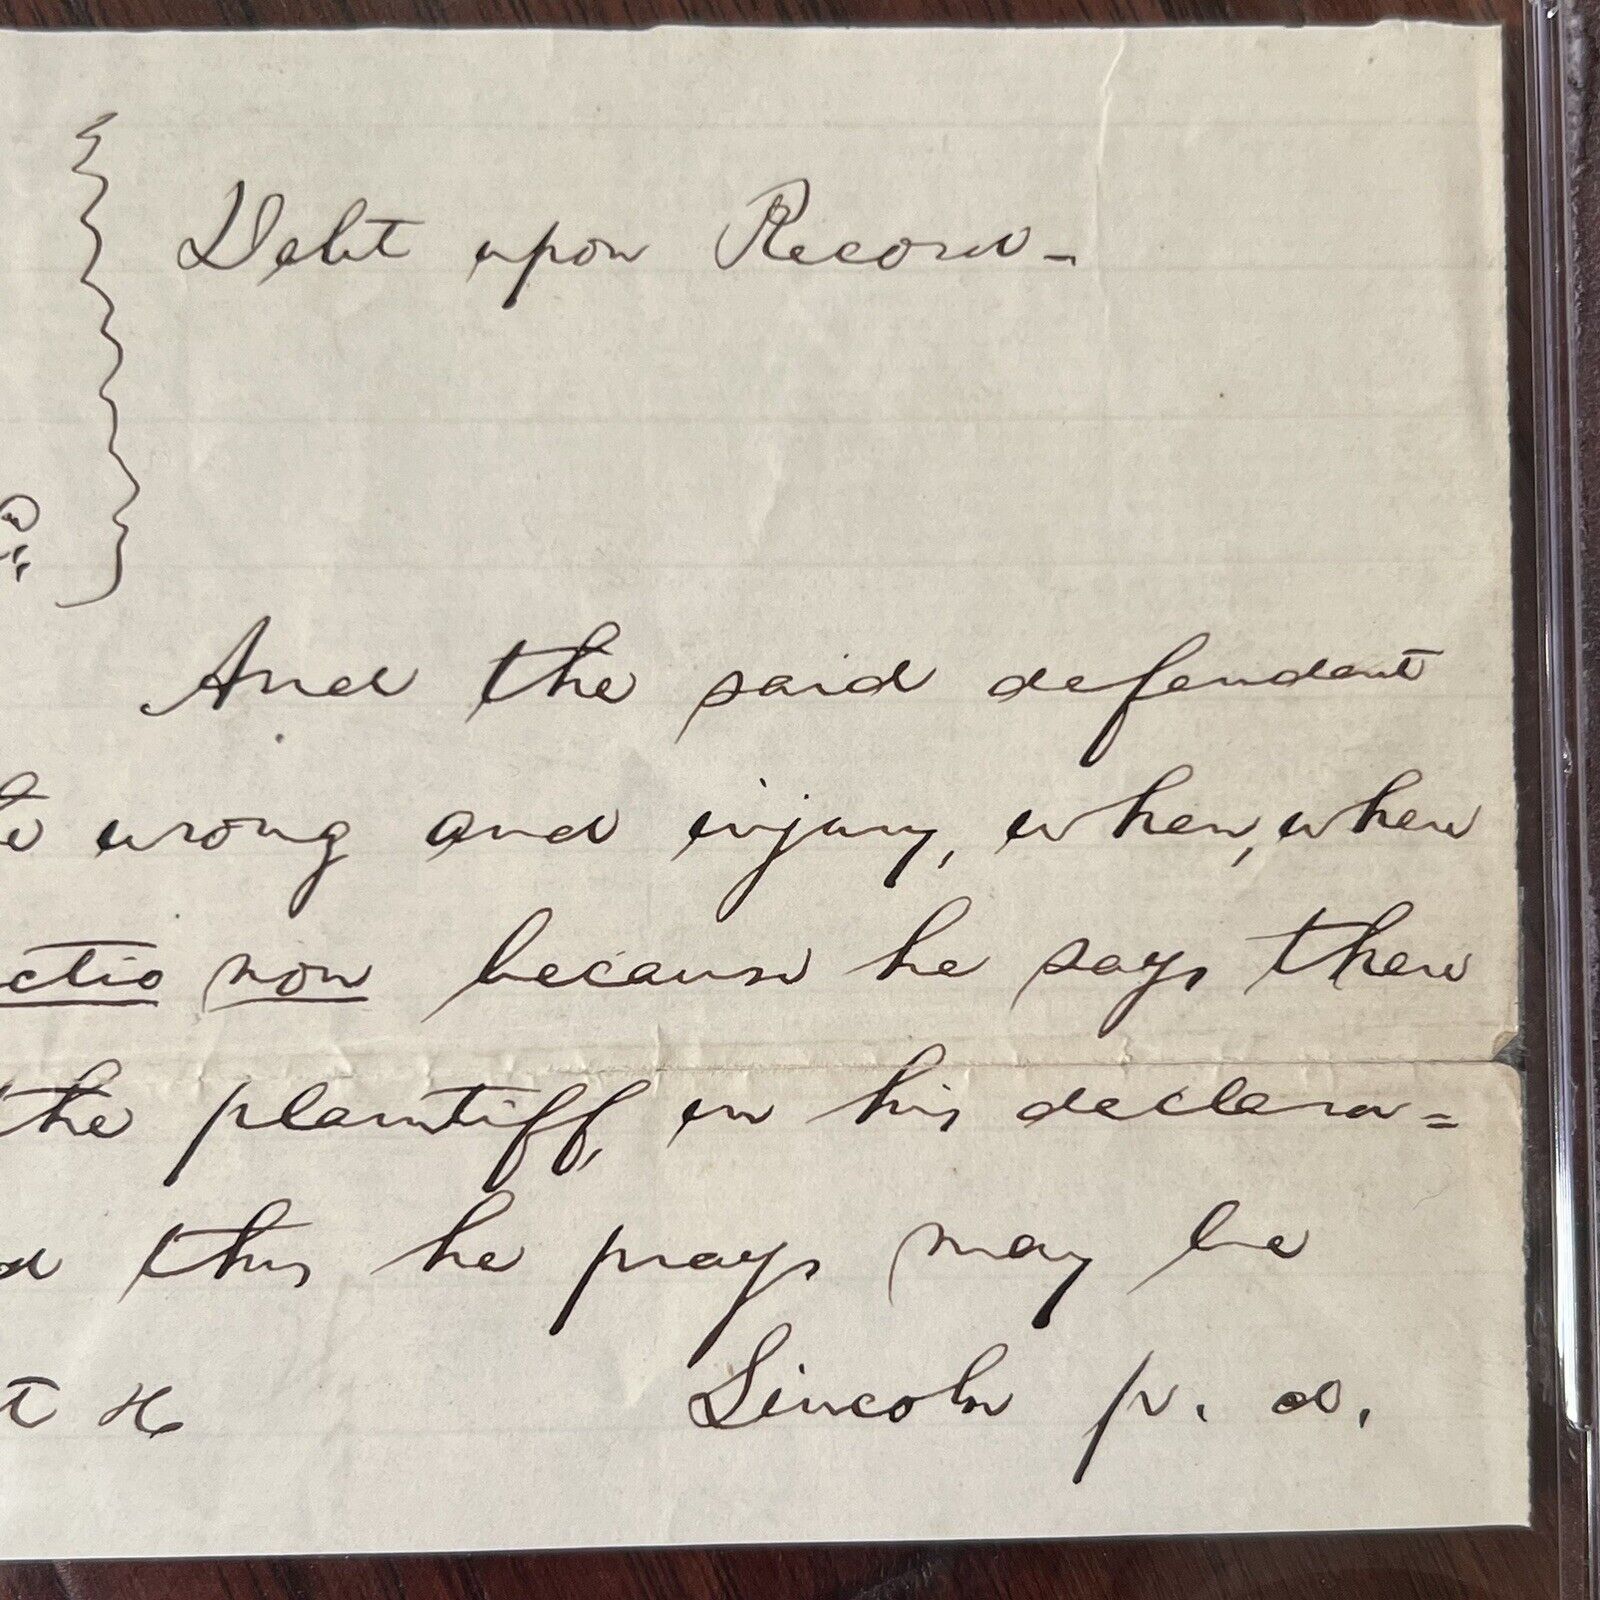 Debt upon Record-
And the said defendant
wrong and injury, when, when
ctio non because he says there
the plaintiff, in his declara=
this he prays may be
t &c Lincoln p. d.